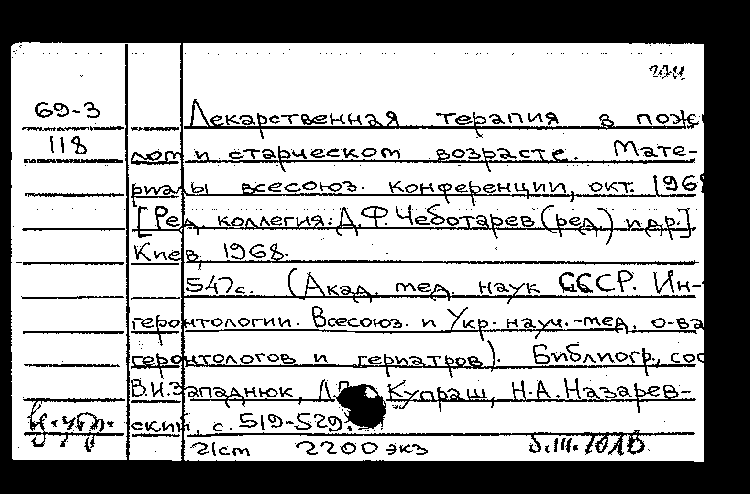 69-3
118
Лекарственная терапия в пож
лом и старческом возрасте. Мате-
риалы всесоюз. конференции, окт. 1968
[Ред. коллегия: Д.Ф. Чеботарев (ред.) и др.].
Киев, 1968.
547с. (Акад. мед. наук СССР. Ин-
геронтологии. Всесоюз. и Укр. науч.-мед. о-ва
геронтологов и гериатров). Библиогр., сос
В.И. Западнюк, Купраш, Н.А. Назарев-
ский, с. 519-529.
2200 экз